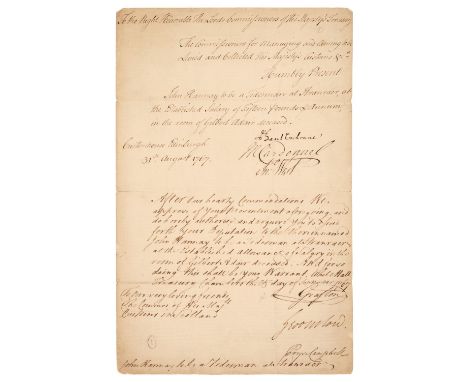 To the Right Honorable the Lords Commissioners of His Majesty's Treasury
The Commissioners for Managing and
and Collected His Majesty's Customs &c.
Humbly Present
John Hannay to be a Tidesman at Stranraer, at
the Established Salary of Fifteen Pounds Annum
in the room of Gilbert Adair deceased.
Customhouse Edinburgh
31st August 1767.
Basil Cochrane
M Cardonnel
After our hearty Commendations We
approve of your Presentment aforegoing, and
do hereby authorize and require You to
forth Your Deputation to the abovenamed
John Hannay to be a Tidesman at Stranraer
at the Established allowance of Salary in the
room of Gilbert Adair deceased. And for so
doing this shall be your Warrant. Whitehall
Treasury Chambers the day of 1767
To our very loving friends
Grafton
the Commrs of His Majs
Customs in Scotland
Townshend
Pryse Campbell
John Hannay to be a Tidesman at Stranraer